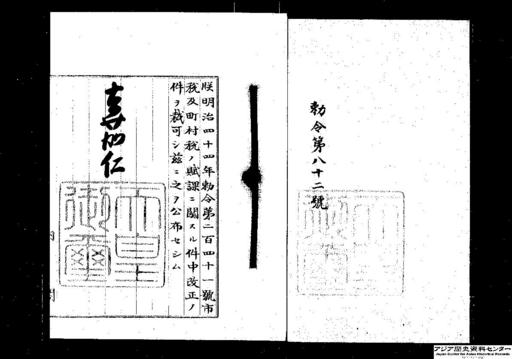 勅令第八十二號
朕明治四十四年勅令第二百四十一號市
税及町村税ノ賦課ニ關スル件中改正ノ
件ヲ裁可シ茲ニ之ヲ公布セシム
嘉仁
天皇
御璽
内
閣
アジア歴史資料センター
Japan Center for Asian Historical Records